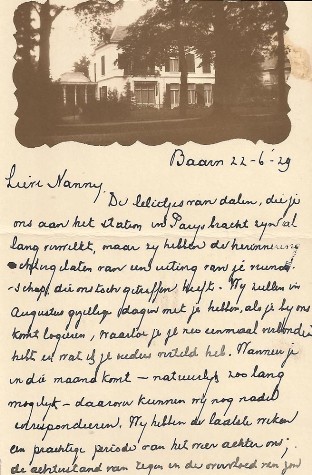 Baarn 22-6-29
Lieve Nanny.
De lelietjes van dalen, die je
ons aan het station in Parijs bracht zijn al
lang verwelkt, maar zij hebben de herinnering
achtergelaten van een uiting van je vriend-
-schap, die ons toch getroffen heeft. Wij zullen in
Augustus gezellige dagen met je hebben, als je bij ons
komt logeeren, waartoe je je nu eenmaal verbonden
hebt en wat ik je ouders verteld heb. Wanneer je
in die maand komt - natuurlijk zoo lang
mogelijk - daarover kunnen wij nog nader
correspondeeren. Wij hebben de laatste weken
een prachtige periode van het weer achter ons;
de achterstand van regen in de overvloed van zon